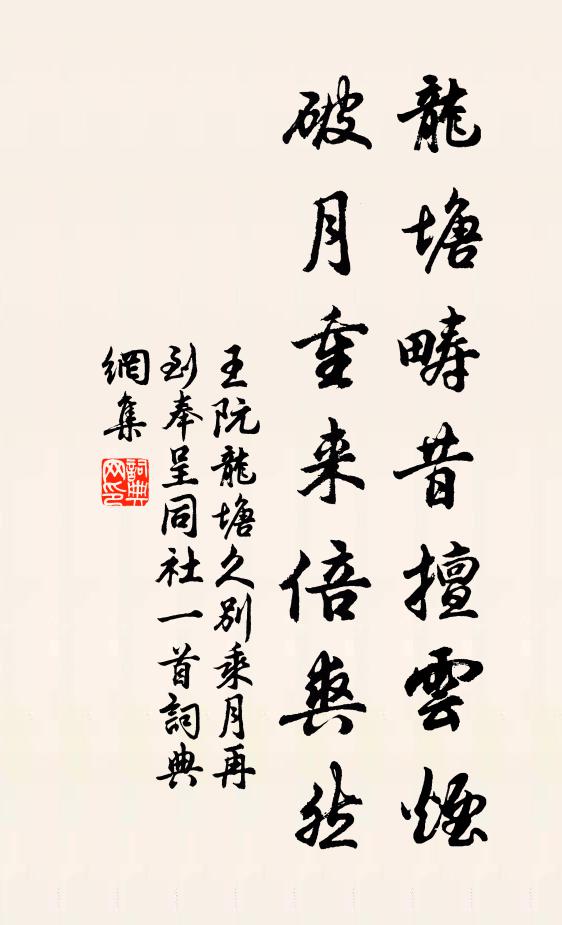 龍塘疇昔擅雲煙
破月重来倍爽然
王阮龍塘久別乘月再
到奉呈同社一首詞典
網集
詞典
网印